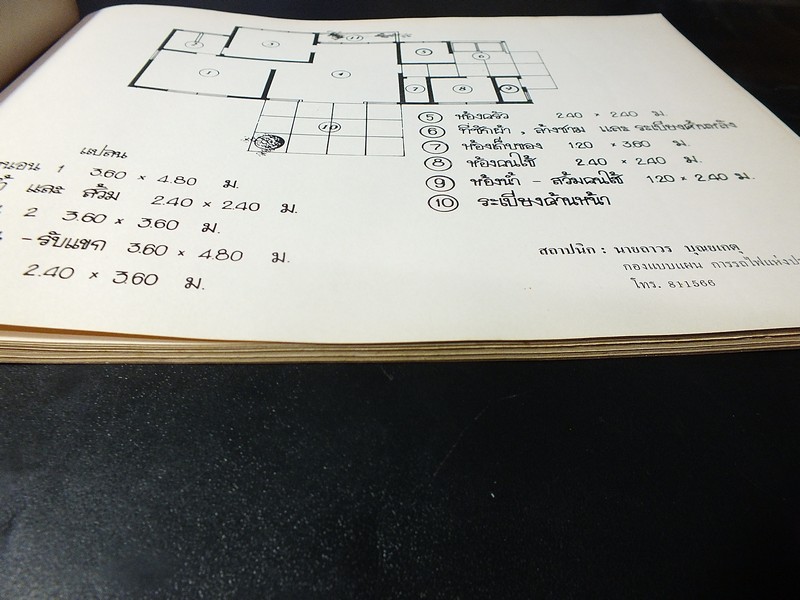 แปลน
นอน 1 3.60 × 4.80 ม.
และ ส้วม 2.40 × 2.40 ม.
2 3.60 × 3.60 ม.
-รับแขก 3.60 × 4.80 ม.
2.40 × 3.60 ม.
5 ห้องครัว 2.40 × 2.40 ม.
6 ที่ซักผ้า , ล้างชาม และ ระเบียงด้านหลัง
7 ห้องเก็บของ 1.20 × 3.60 ม.
8 ห้องคนใช้ 2.40 × 2.40 ม.
9 ห้องน้ำ - ส้วมคนใช้ 1.20 × 2.40 ม.
10 ระเบียงด้านหน้า
สถาปนิก : นายถาวร บุณยเกตุ
กองแบบแผน การรถไฟแห่งป
โทร. 811566